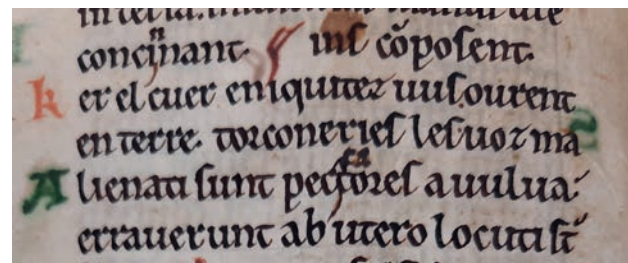 conciñant. inſ cōpoſent.
k er el cuer eniquitez uuſ.ourent
en terre. torconerieſ leſ uoz ma
A lienati ſunt peccatoreſ a uulua:
errauerunt ab utero locuti ſt̄